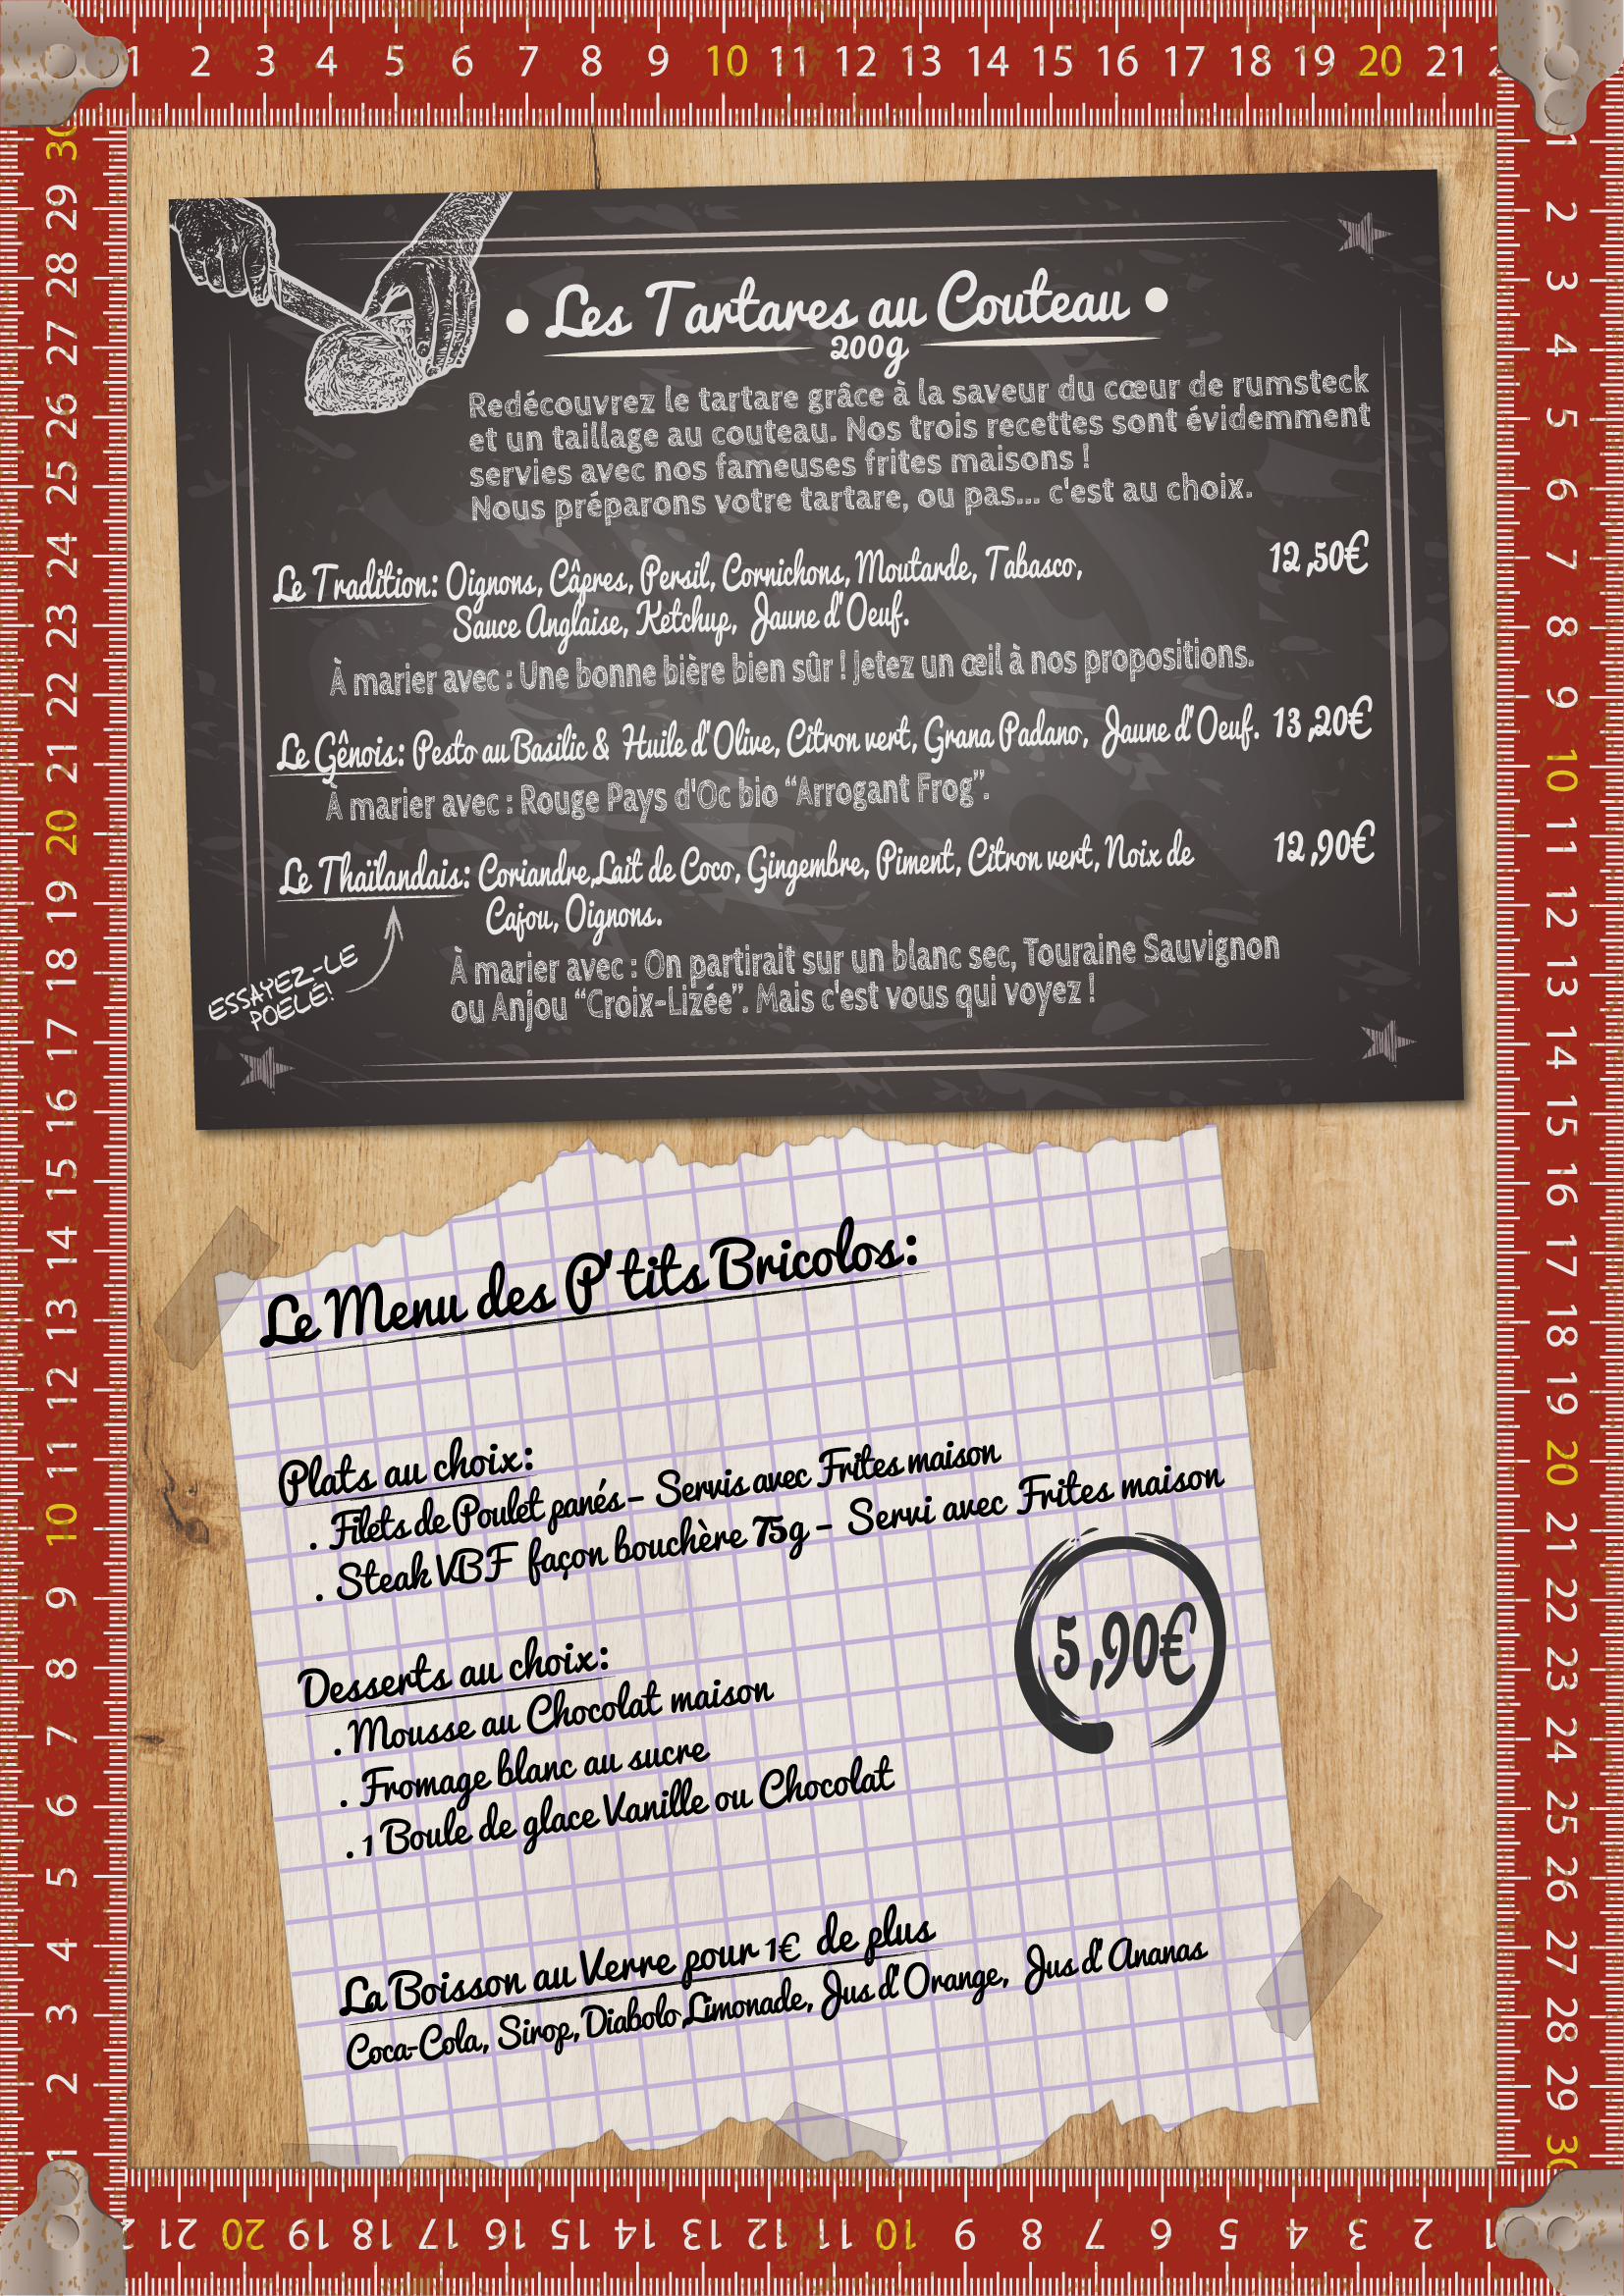 1 2 3 4 5 6 7 8 9 10 11 12 13 14 15 16 17 18 19 20 21 2
30 29 28 27 26 25 24 23 22 21 20 19 18 17 16 15 14 13 12 11 10 9 8 7 6 5 4 3 2 1
• Les Tartares au Couteau •
200g
Redécouvrez le tartare grâce à la saveur du cœur de rumsteck
et un taillage au couteau. Nos trois recettes sont évidemment
servies avec nos fameuses frites maisons !
Nous préparons votre tartare, ou pas... c'est au choix.
Le Tradition: Oignons, Câpres, Persil, Cornichons, Moutarde, Tabasco, 12,50€
Sauce Anglaise, Ketchup, Jaune d'Oeuf.
À marier avec : Une bonne bière bien sûr ! Jetez un œil à nos propositions.
Le Gênois: Pesto au Basilic & Huile d'Olive, Citron vert, Grana Padano, Jaune d'Oeuf. 13,20€
À marier avec : Rouge Pays d'Oc bio “Arrogant Frog”.
Le Thaïlandais: Coriandre,Lait de Coco, Gingembre, Piment, Citron vert, Noix de 12,90€
Cajou, Oignons.
À marier avec : On partirait sur un blanc sec, Touraine Sauvignon
ou Anjou “Croix-Lizée”. Mais c'est vous qui voyez !
ESSAYEZ-LE
POELÉ!
Le Menu des P'tits Bricolos:
Plats au choix:
. Filets de Poulet panés – Servis avec Frites maison
. Steak VBF façon bouchère 75g – Servi avec Frites maison
5,90€
Desserts au choix:
. Mousse au Chocolat maison
. Fromage blanc au sucre
. 1 Boule de glace Vanille ou Chocolat
La Boisson au Verre pour 1€ de plus
Coca-Cola, Sirop, Diabolo,Limonade, Jus d'Orange, Jus d'Ananas
1 2 3 4 5 6 7 8 9 10 11 12 13 14 15 16 17 18 19 20 21 22 23 24 25 26 27 28 29 30
2 21 20 19 18 17 16 15 14 13 12 11 10 9 8 7 6 5 4 3 2 1